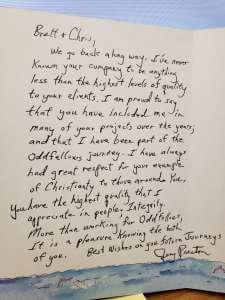 Brett & Chris,
We go back a long way. I've never
known your company to be anything
less than the highest levels of quality
to your clients. I am proud to say
that you have included me in
many of your projects over the years
and that I have been part of the
Oddfellows journey. I have always
had great respect for your example
of Christianity to those around you.
You have the highest quality that I
appreciate in people; Integrity.
More than working for Oddfellows,
It is a pleasure knowing the both
of you. Best Wishes on you future Journeys